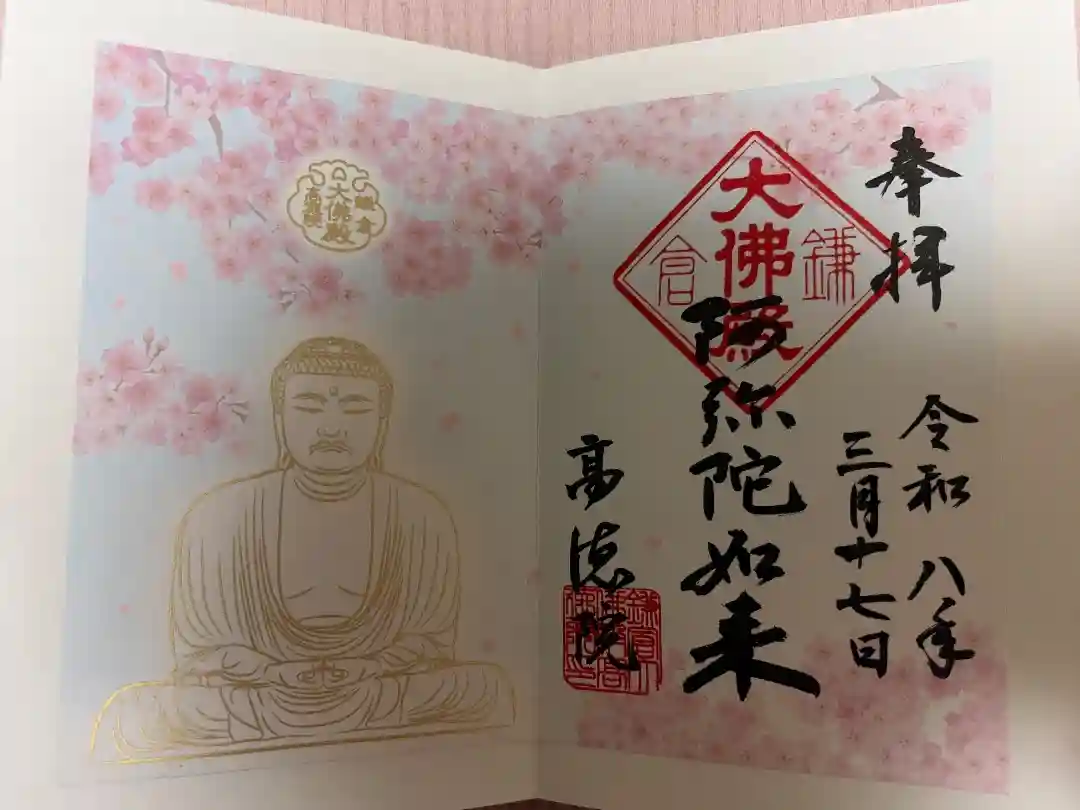 奉拝
令和八年
三月十七日
鎌倉
大佛殿
阿弥陀如来
高徳院
大佛殿